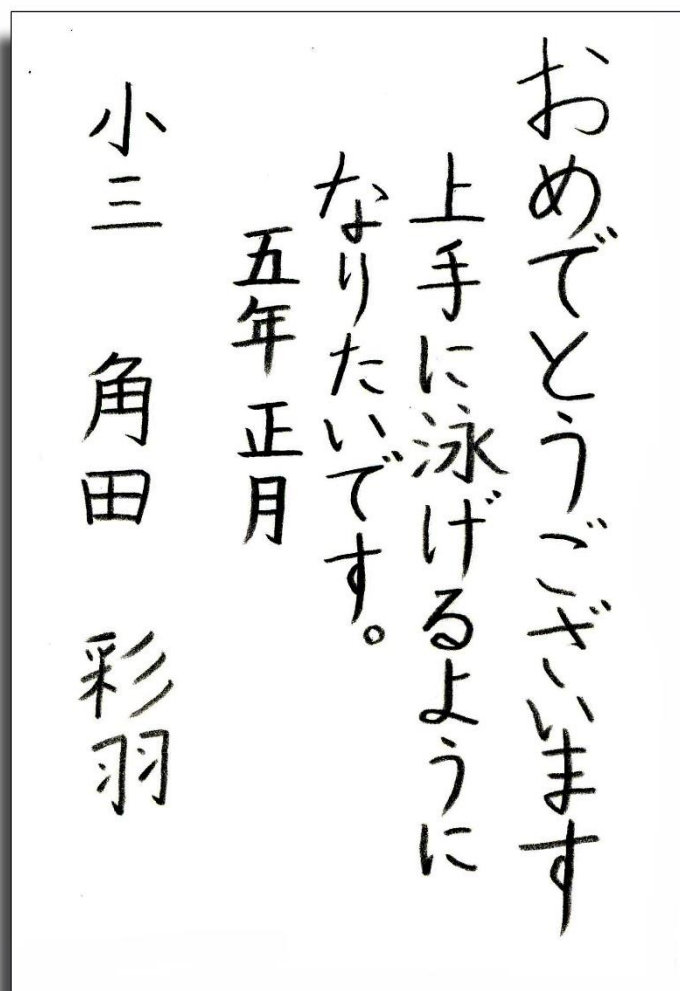 おめでとうございます
上手に泳げるように
なりたいです。
五年 正月
小三 角田 彩羽